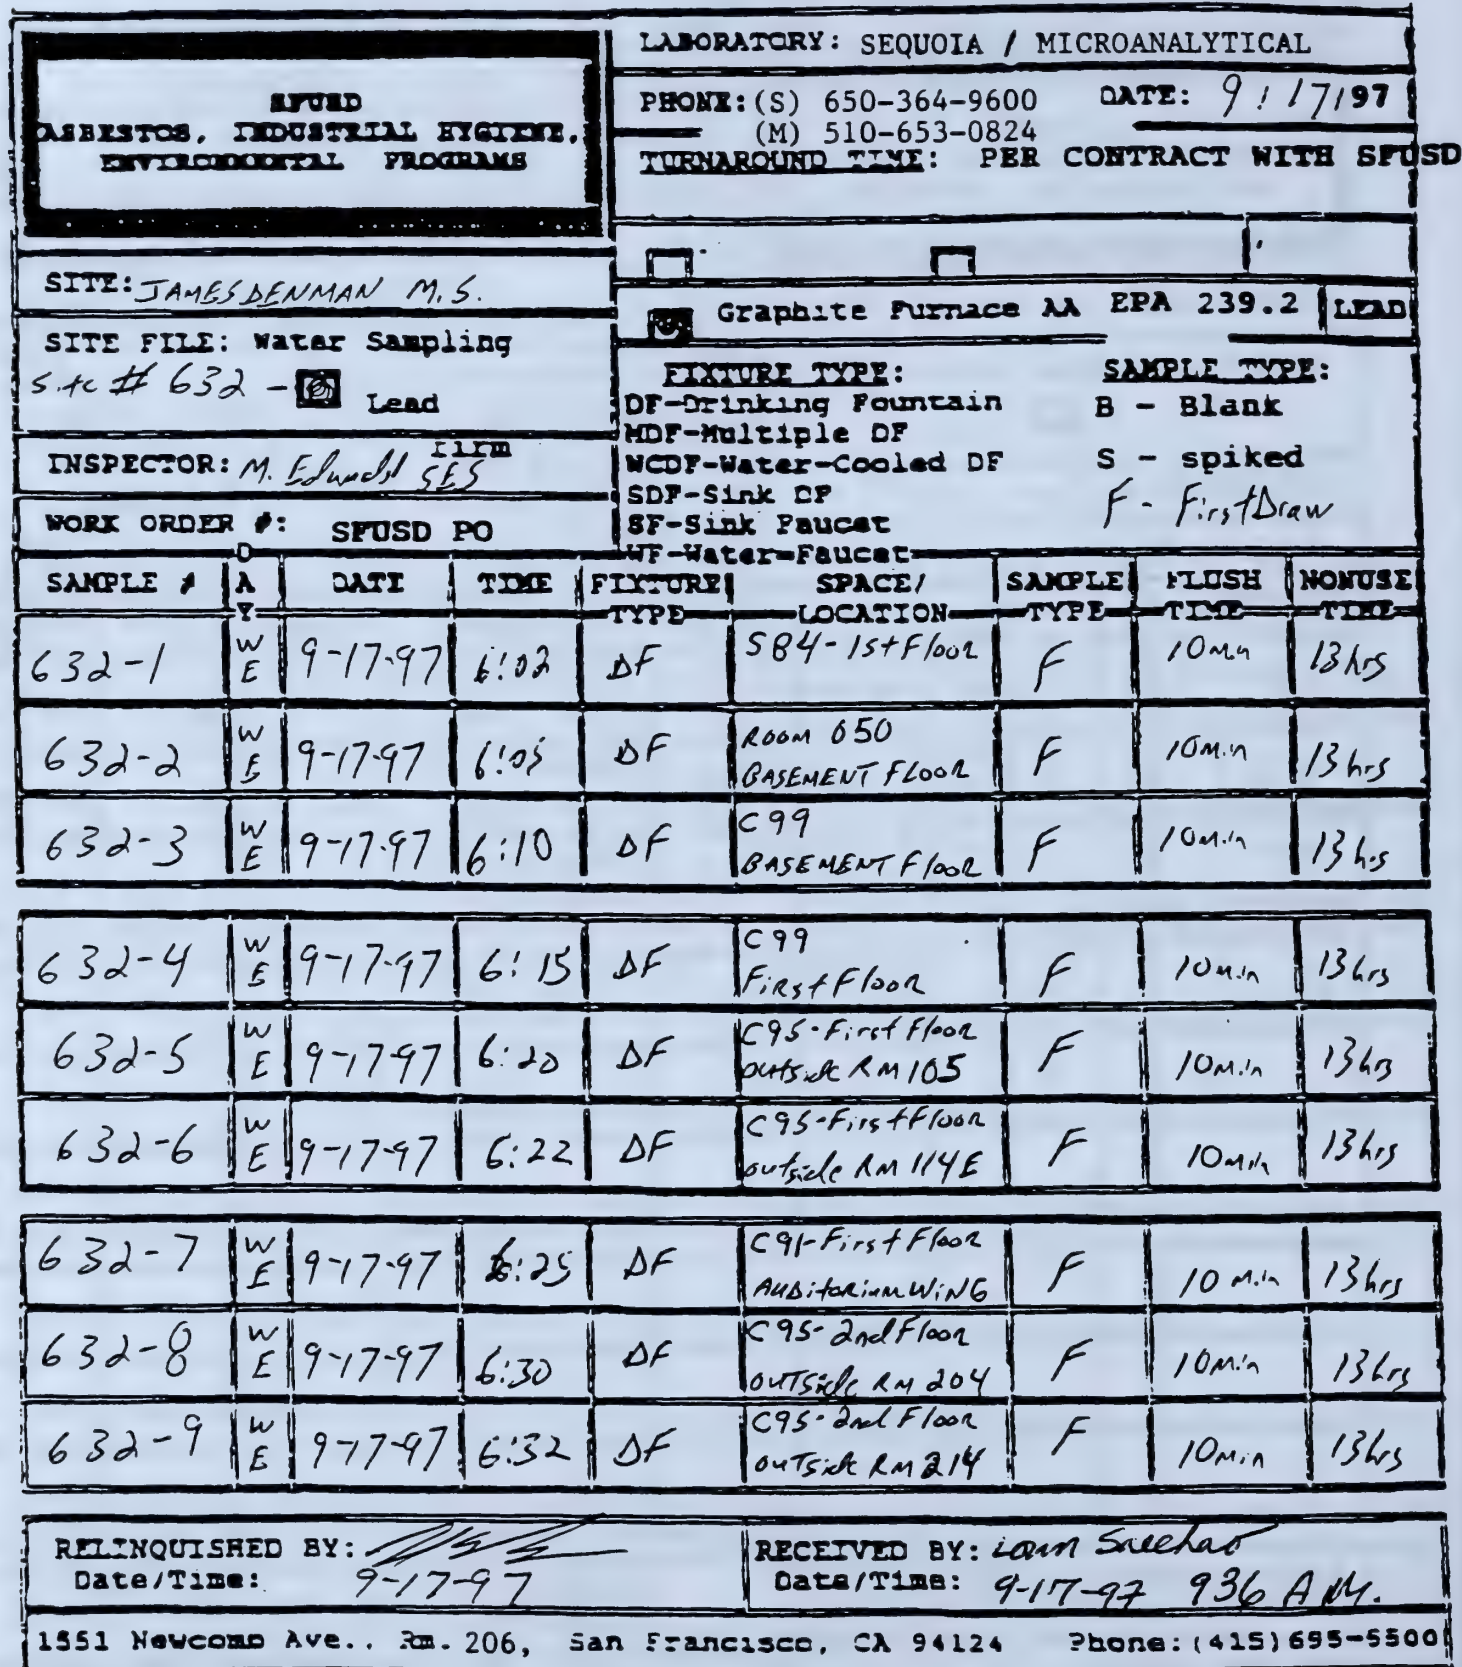 SFUSD
ASBESTOS, INDUSTRIAL HYGIENE,
ENVIRONMENTAL PROGRAMS
LABORATORY: SEQUOIA / MICROANALYTICAL
PHONE: (S) 650-364-9600 DATE: 9/17/97
(M) 510-653-0824
TURNAROUND TIME: PER CONTRACT WITH SFUSD
SITE: JAMES DENMAN M.S.
SITE FILE: Water Sampling
Site # 632 - Lead
INSPECTOR: M. Edwards Firm SES
WORK ORDER #: SFUSD PO
Graphite Furnace AA EPA 239.2 LEAD
FIXTURE TYPE:
DF-Drinking Fountain
MDF-Multiple DF
WCDF-Water-Cooled DF
SDF-Sink DF
SF-Sink Faucet
WF-Water-Faucet
SAMPLE TYPE:
B - Blank
S - spiked
F - First Draw
SAMPLE # DAY DATE TIME FIXTURE TYPE SPACE/LOCATION SAMPLE TYPE FLUSH TIME NONUSE TIME
632-1 WE 9-17-97 6:02 DF SB4-1st Floor F 10 min 13 hrs
632-2 WE 9-17-97 6:05 DF ROOM 050 BASEMENT FLOOR F 10 min 13 hrs
632-3 WE 9-17-97 6:10 DF C99 BASEMENT Floor F 10 min 13 hrs
632-4 WE 9-17-97 6:15 DF C99 First Floor F 10 min 13 hrs
632-5 WE 9-17-97 6:20 DF C95-First Floor outside RM 105 F 10 min 13 hrs
632-6 WE 9-17-97 6:22 DF C95-First Floor outside RM 114E F 10 min 13 hrs
632-7 WE 9-17-97 6:25 DF C91-First Floor Auditorium WING F 10 min 13 hrs
632-8 WE 9-17-97 6:30 DF C95-2nd Floor outside RM 204 F 10 min 13 hrs
632-9 WE 9-17-97 6:32 DF C95-2nd Floor outside RM 214 F 10 min 13 hrs
RELINQUISHED BY:
Date/Time: 9-17-97
RECEIVED BY:
Date/Time: 9-17-97 936 AM.
1551 Newcomb Ave., Rm. 206, San Francisco, CA 94124 Phone: (415)695-5500